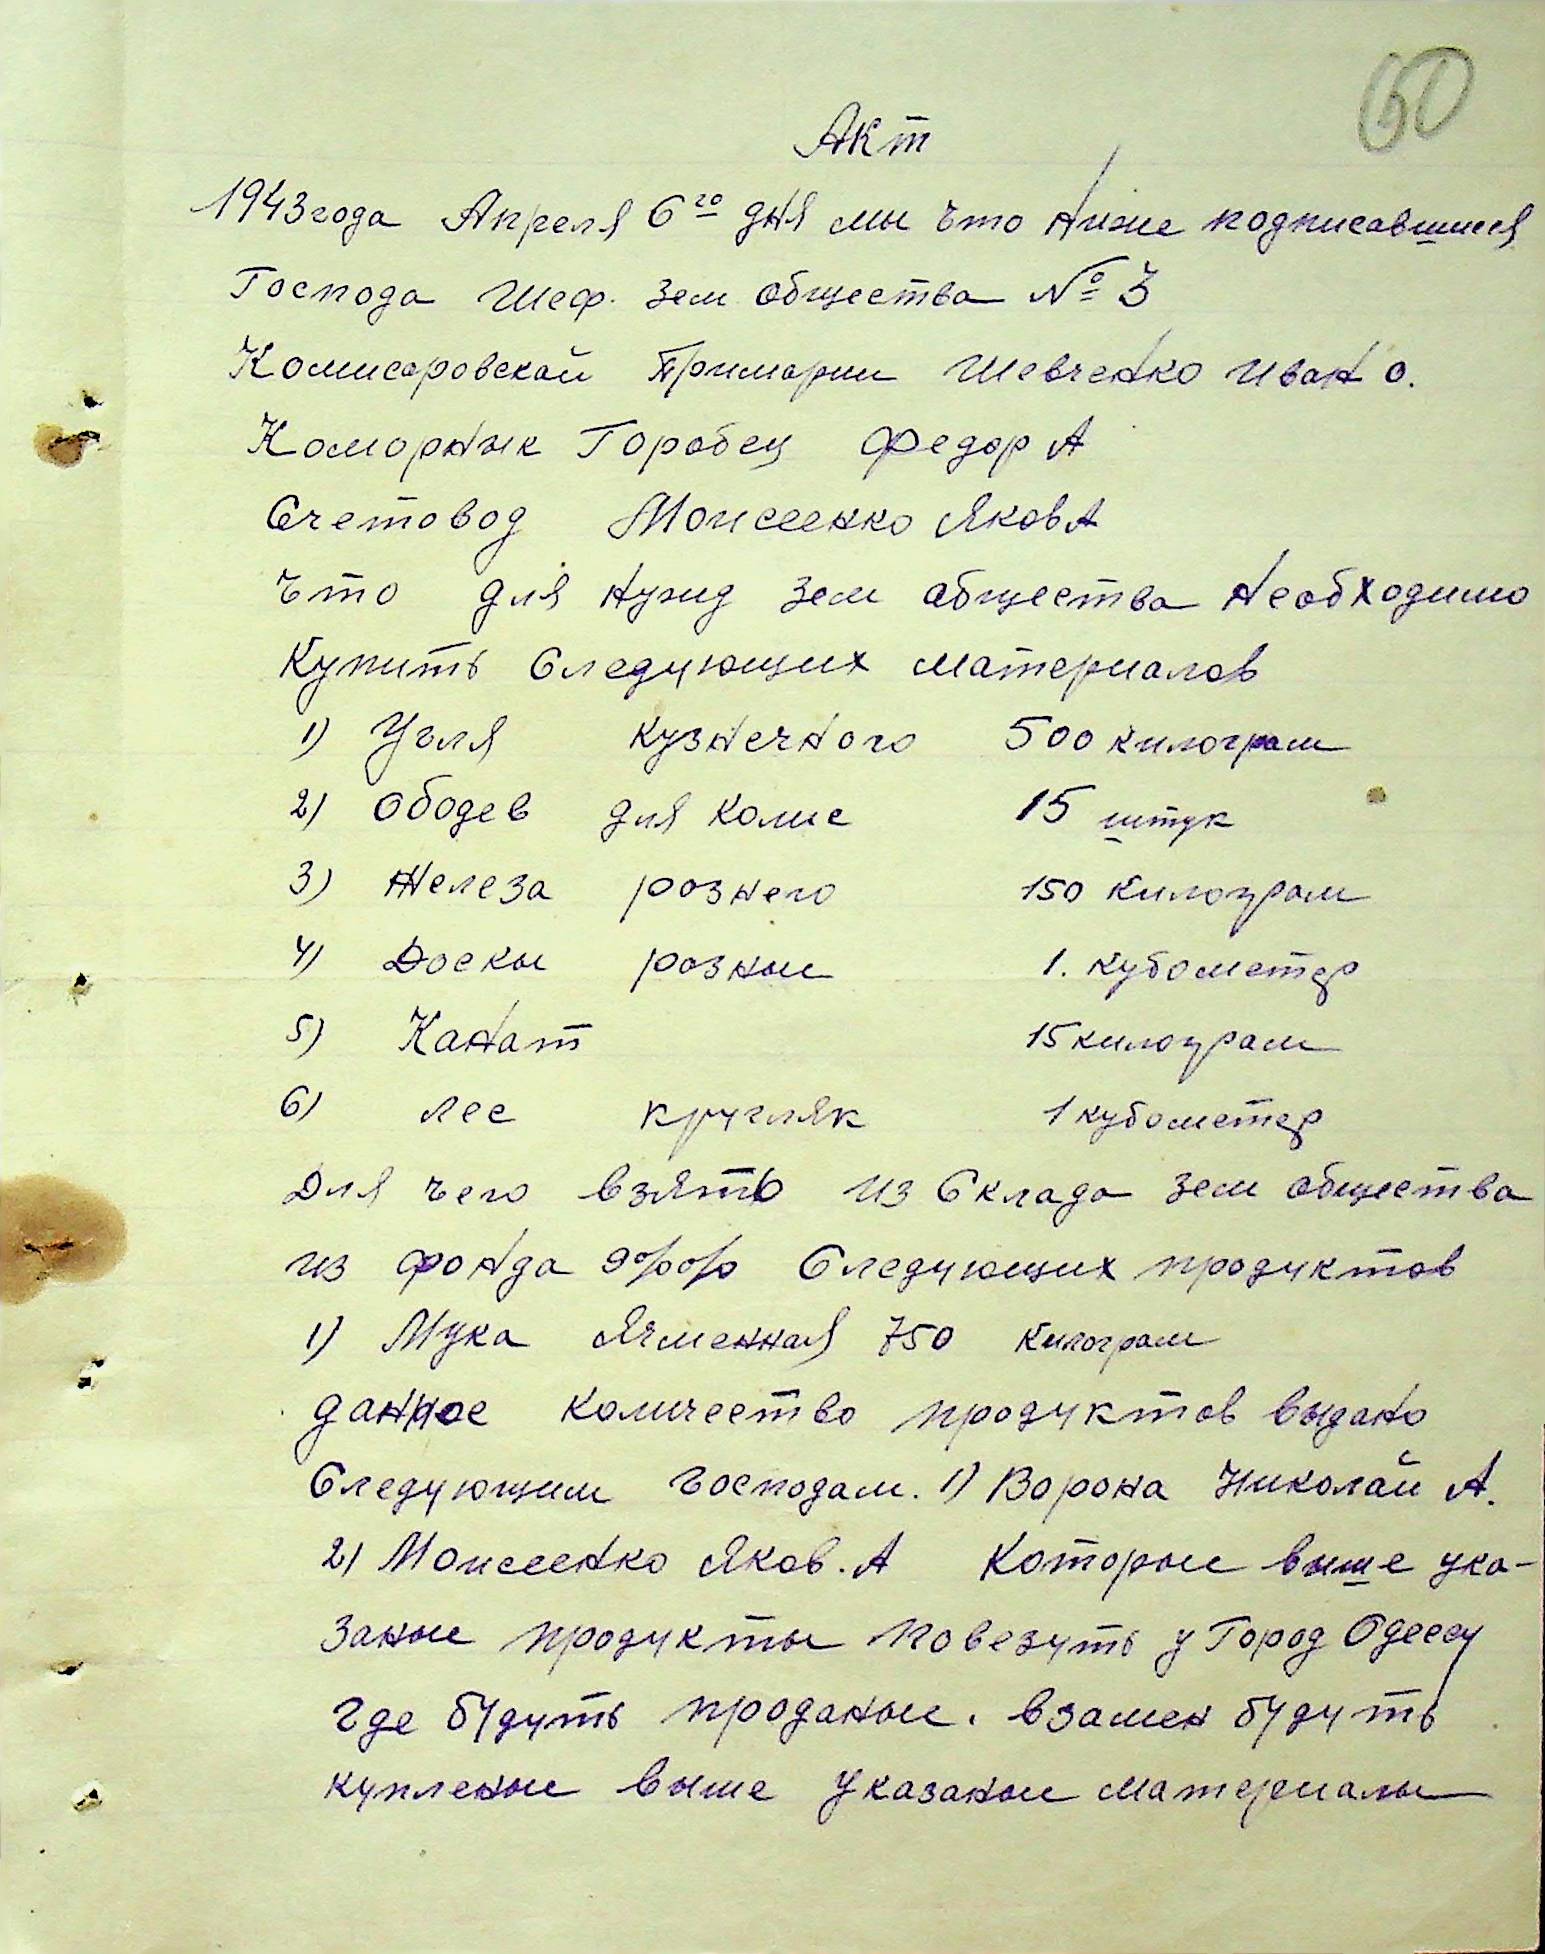 60
Акт
1943 года Апреля 6го дня мы что ниже подписавшиеся
Господа Шеф. Зем общества № 3
Комисаровской Примарии Шевченко Иван О.
Коморнык Горобец Федор А
Счетовод Моисеенко Яков А
что для нужд Зем общества необходимо
Купить Следующих материалов
1) Угля кузнечного 500 килограм
2) Ободев для Колис 15 штук
3) Железа розного 150 килограм
4) Доскы розные 1. кубометер
5) Канат 15 килограм
6) лес кругляк 1 кубометер
Для чего взять из Склада Зем общества
из фонда Следующих продуктов
1) Мука Ячменная 750 килограм
данное количество продуктов выдано
Следующим господам. 1) Ворона Николай А.
2) Моисеенко Яков. А Которые выше ука-
заные продукты повезуть у Город Одессу
где будуть проданые. взамен будуть
купленые выше указаные материалы